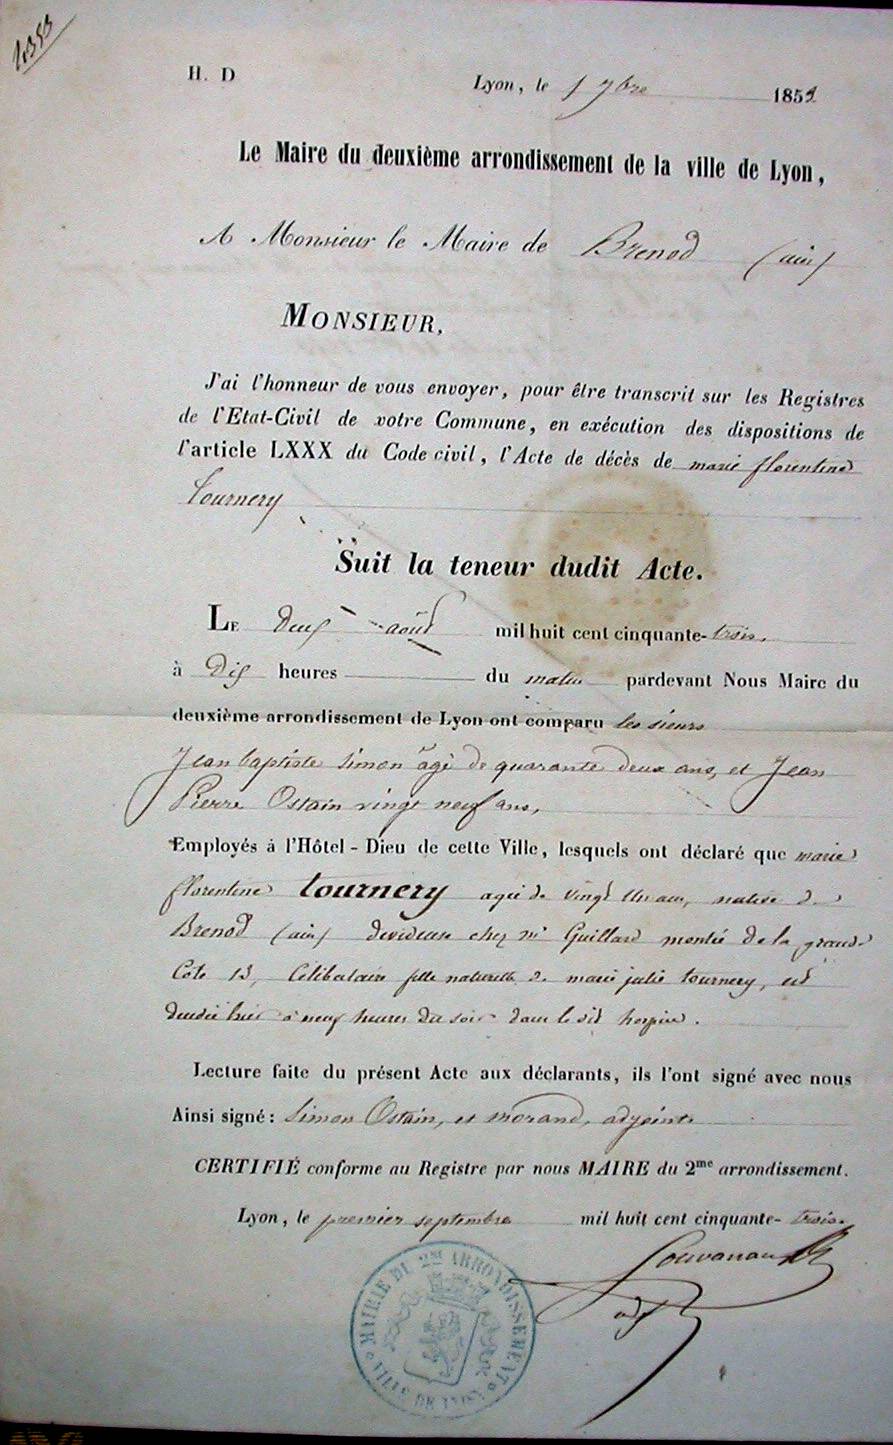 H. D
Lyon, le 1 7bre 1853
Le Maire du deuxième arrondissement de la ville de Lyon,
A Monsieur le Maire de Brenod (ain)
MONSIEUR,
J'ai l'honneur de vous envoyer, pour être transcrit sur les Registres
de l'Etat-Civil de votre Commune, en exécution des dispositions de
l'article LXXX du Code civil, l'Acte de décès de marie florentine
tournery
Suit la teneur dudit Acte.
LE Deux août mil huit cent cinquante-trois.
à Dix heures du matin pardevant Nous Maire du
deuxième arrondissement de Lyon ont comparu les sieurs
Jean baptiste Simon âgé de quarante deux ans, et Jean
Pierre Ostain vingt neuf ans,
Employés à l'Hôtel-Dieu de cette Ville, lesquels ont déclaré que marie
florentine tournery agée de vingt un ans, native de
Brenod (ain) devideuse chez mr Guillard montée de la grande
Côte 13, Célibataire fille naturelle de marie julie tournery, est
décédée hier à neuf heures du soir dans le dit hospice.
Lecture faite du présent Acte aux déclarants, ils l'ont signé avec nous
Ainsi signé: Simon Ostain, et morand, adjoint
CERTIFIÉ conforme au Registre par nous MAIRE du 2me arrondissement.
Lyon, le premier septembre mil huit cent cinquante-trois.
adj
MAIRIE DU 2me ARRONDISSEMENT
VILLE DE LYON